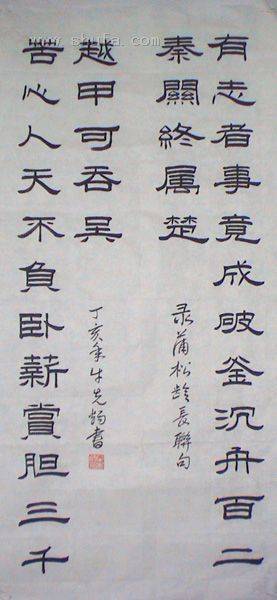 shufa.com
有志者事竟成破釜沉舟百二
秦關終属楚
录蒲松龄長聯句
苦心人天不負卧薪賞胆三千
越甲可吞吴
丁亥年牛先書